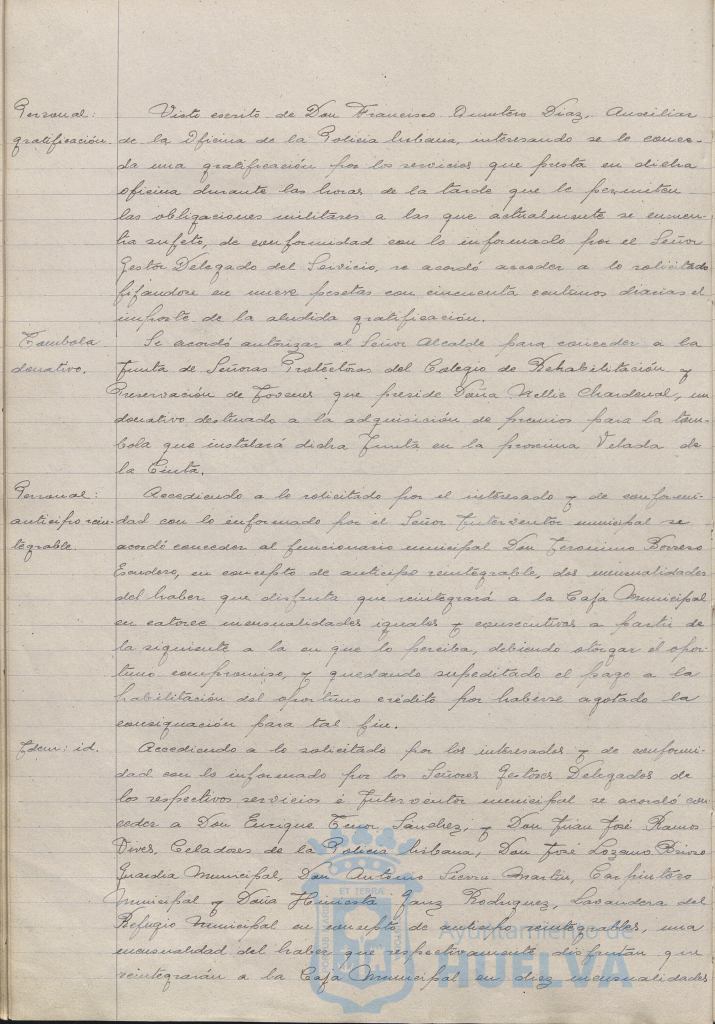 Personal: Visto escrito de Don Francisco Quintero Diaz, Auxiliar
gratificación. de la Oficina de la Policia Urbana, interesando se le conce-
da una gratificación por los servicios que presta en dicha
oficina durante las horas de la tarde que le permiten
las obligaciones militares a las que actualmente se encuen-
tra sujeto, de conformidad con lo informado por el Señor
Gestor Delegado del Servicio, se acordó acceder a lo solicitado
fijandose en nueve pesetas con cincuenta centimos diarias el
importe de la aludida gratificación.
Tombola Se acordó autorizar al Señor Alcalde para conceder a la
donativo. Junta de Señoras Protectoras del Colegio de Rehabilitación y
Preservación de Jovenes que preside Doña Nellie Chardenal, un
donativo destinado a la adquisición de premios para la tom-
bola que instalará dicha Junta en la proxima Velada de
la Cinta.
Personal: Accediendo a lo solicitado por el interesado y de conformi-
anticipo rein- dad con lo informado por el Señor Interventor municipal se
tegrable. acordó conceder al funcionario municipal Don Jeronimo Borrero
Escudero, en concepto de anticipo reintegrable, dos mensualidades
del haber que disfruta que reintegrará a la Caja Municipal
en catorce mensualidades iguales y consecutivas a partir de
la siguiente a la en que lo perciba, debiendo otorgar el opor-
tuno compromiso, y quedando supeditado el pago a la
habilitación del oportuno crédito por haberse agotado la
consignación para tal fin.
Idem: id. Accediendo a lo solicitado por los interesados y de conformi-
dad con lo informado por los Señores Gestores Delegados de
los respectivos servicios é Interventor municipal se acordó con
ceder a Don Enrique Tenor Sánchez, y Don Juan José Ramos
Vives, Celadores de la Policia Urbana, Don José Lozano
Guardia Municipal, Don Antonio Martin, Carpintero
Municipal y Doña Hiniesta Rodriguez, Lavandera del
Refugio Municipal en concepto de anticipo reintegrables, una
mensualidad del haber que respectivamente disfrutan que
reintegrarán a la Caja Municipal en diez mensualidades
ET TERRA
Ayuntamiento de
HUELVA